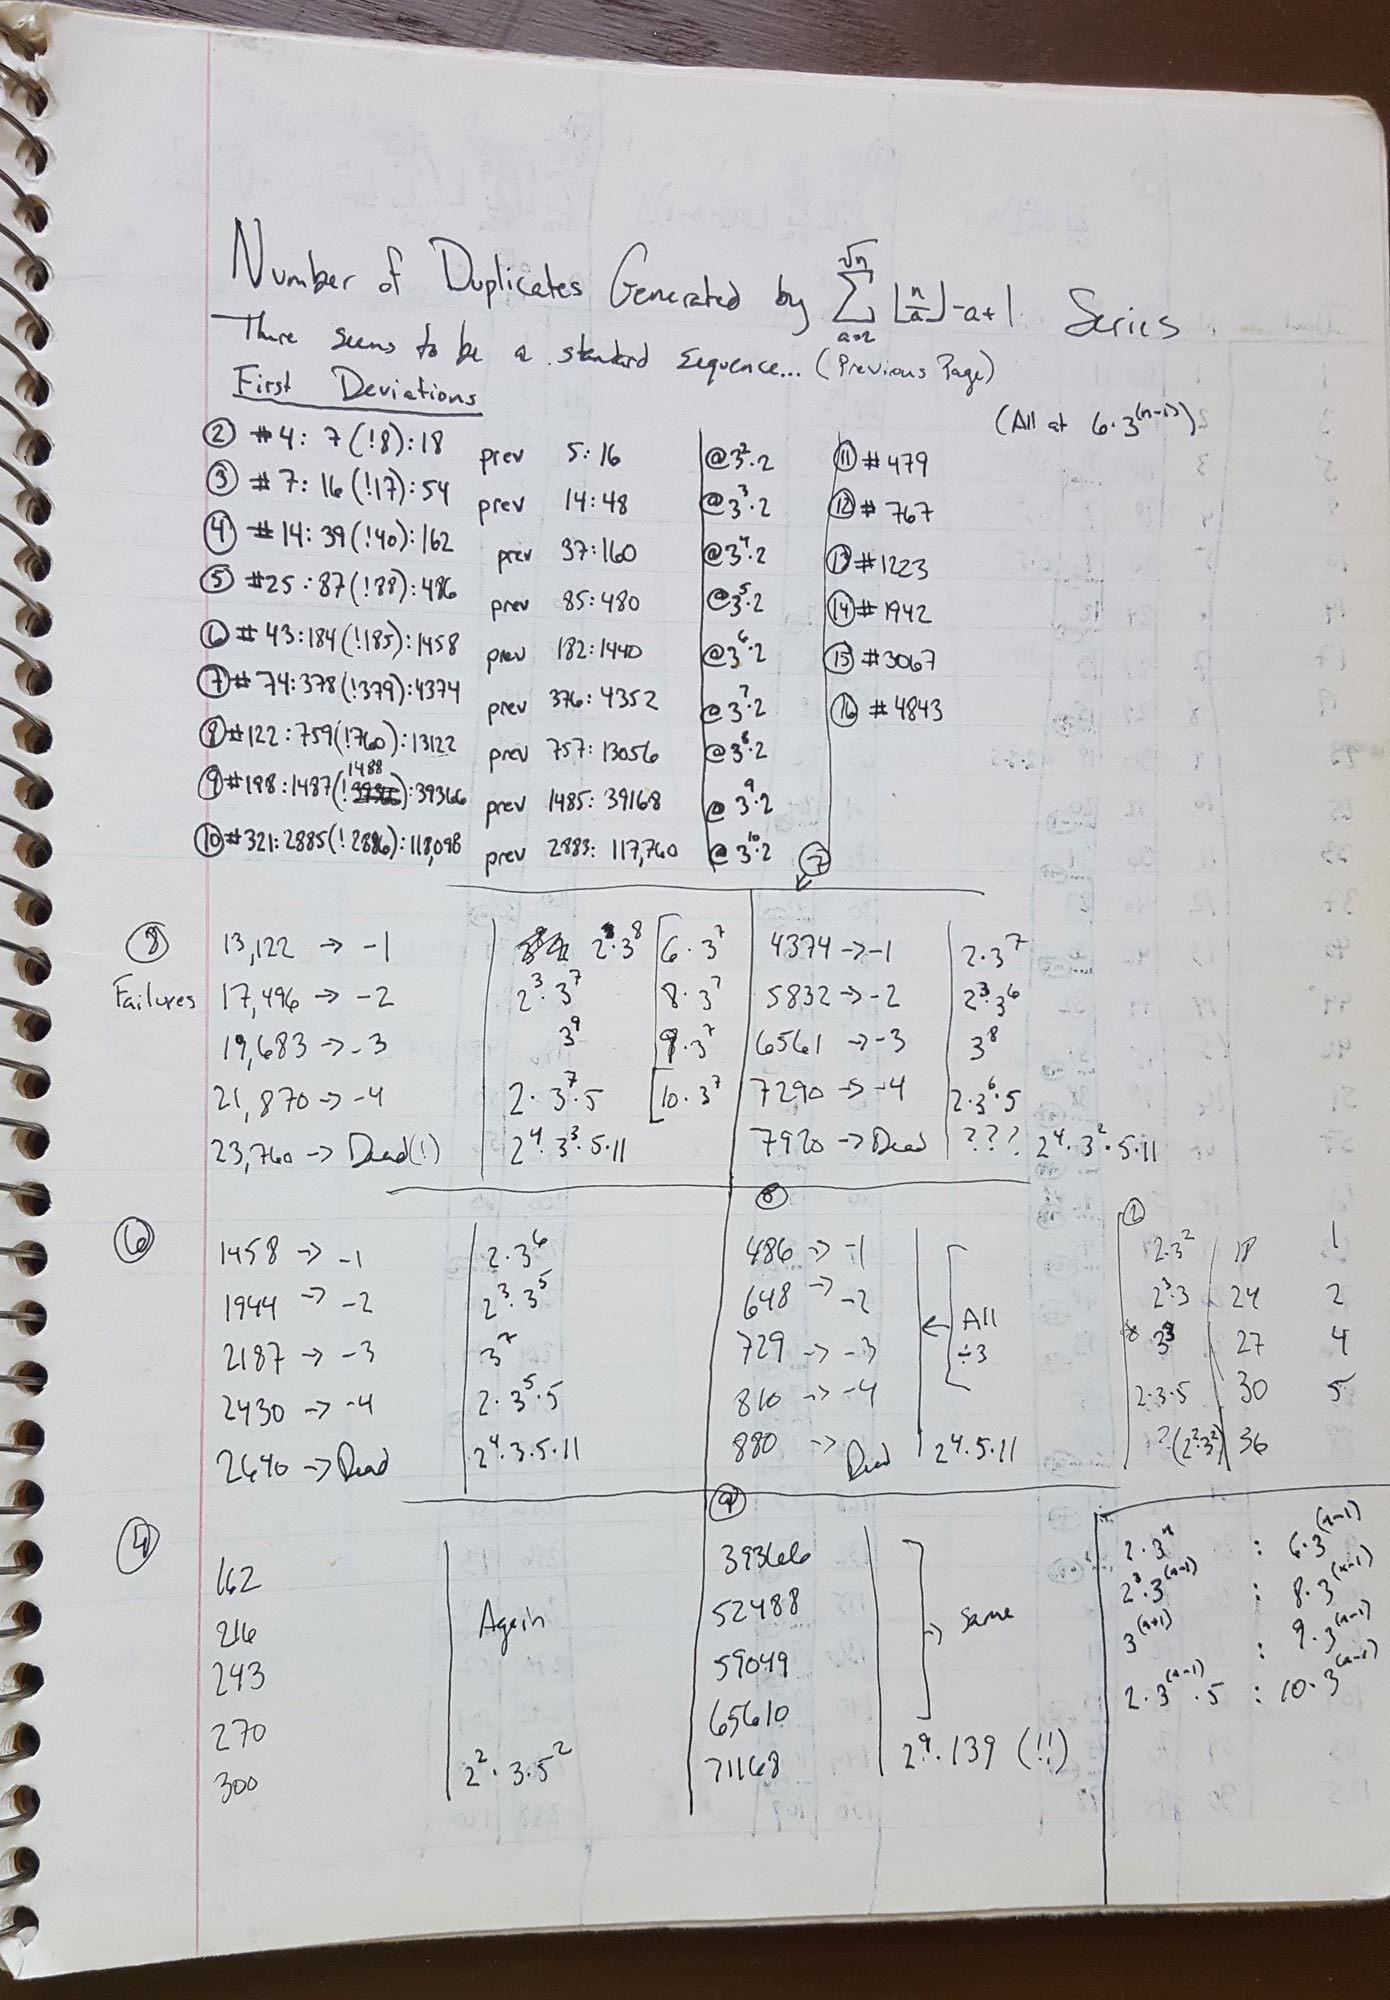 Number of Duplicates Generated by √n ∑ a=2 ⌊n/a⌋-a+1 Series
There seems to be a standard sequence... (Previous Page)
First Deviations
(All at 6·3^(n-1))
② #4: 7(!8):18 prev 5:16 @3^2·2
③ #7: 16(!17):54 prev 14:48 @3^3·2
④ #14: 39(!40):162 prev 37:160 @3^4·2
⑤ #25:87(!88):486 prev 85:480 @3^5·2
⑥ #43:184(!185):1458 prev 182:1440 @3^6·2
⑦ #74:378(!379):4374 prev 376:4352 @3^7·2
⑧ #122:759(!760):13122 prev 757:13056 @3^8·2
⑨ #198:1487(!1488):39366 prev 1485:39168 @3^9·2
⑩ #321:2885(!2886):118,098 prev 2883:117,760 @3^10·2
⑪ #479
⑫ #767
⑬ #1223
⑭ #1942
⑮ #3067
⑯ #4843
⑧ Failures
13,122 -> -1 2·3^8 6·3^7
17,496 -> -2 2^3·3^7 8·3^7
19,683 -> -3 3^9 9·3^7
21,870 -> -4 2·3^7·5 10·3^7
23,760 -> Dead(!) 2^4·3^3·5·11
⑦
4374 -> -1 2·3^7
5832 -> -2 2^3·3^6
6561 -> -3 3^8
7290 -> -4 2·3^6·5
7920 -> Dead ??? 2^4·3^2·5·11
⑥
1458 -> -1 2·3^6
1944 -> -2 2^3·3^5
2187 -> -3 3^7
2430 -> -4 2·3^5·5
2640 -> Dead 2^4·3·5·11
⑤
486 -> -1
648 -> -2
729 -> -3
810 -> -4
All ÷3
880 -> Dead 2^4·5·11
2·3^2 18 1
2^3·3 24 2
* 3^3 27 4
2·3·5 30 5
? (2^2·3^2) 36
④
162
216
243
270
Again
300 2^2·3·5^2
⑨
39366
52488
59049
65610
Same
71168 2^9·139 (!!)
2·3^n : 6·3^(n-1)
2^3·3^(n-1) : 8·3^(n-1)
3^(n+1) : 9·3^(n-1)
2·3^(n-1)·5 : 10·3^(n-1)